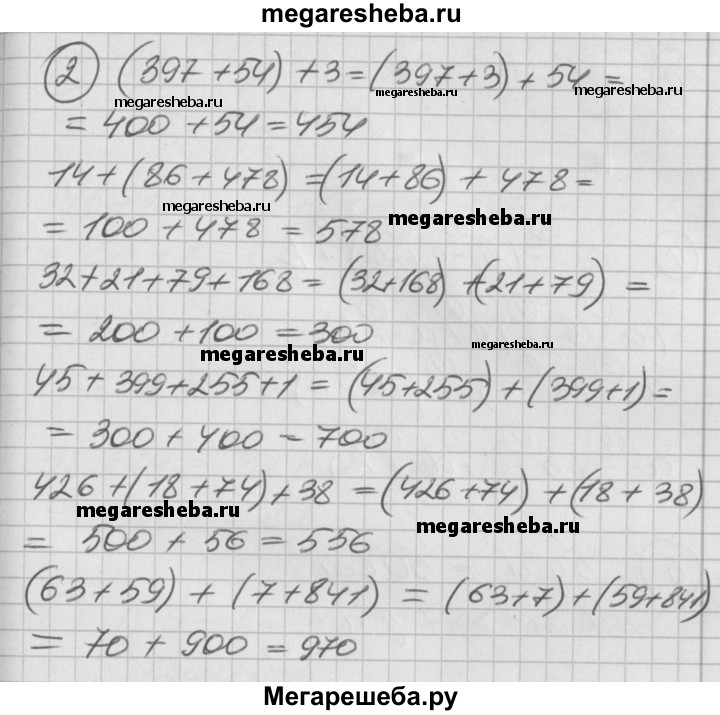 megaresheba.ru
2 (397+54)+3=(397+3)+54=
megaresheba.ru megaresheba.ru megaresheba.ru
=400+54=454
14+(86+478)=(14+86)+478=
megaresheba.ru megaresheba.ru
=100+478=578
32+21+79+168=(32+168)+(21+79)=
=200+100=300
megaresheba.ru megaresheba.ru
45+399+255+1=(45+255)+(399+1)=
=300+400=700
426+(18+74)+38=(426+74)+(18+38)
megaresheba.ru megaresheba.ru
=500+56=556
(63+59)+(7+841)=(63+7)+(59+841)
=70+900=970
Мегарешеба.ру